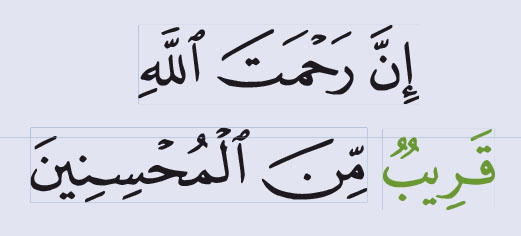 إِنَّ رَحْمَتَ ٱللَّهِ
قَرِيبٌ مِّنَ ٱلْمُحْسِنِينَ